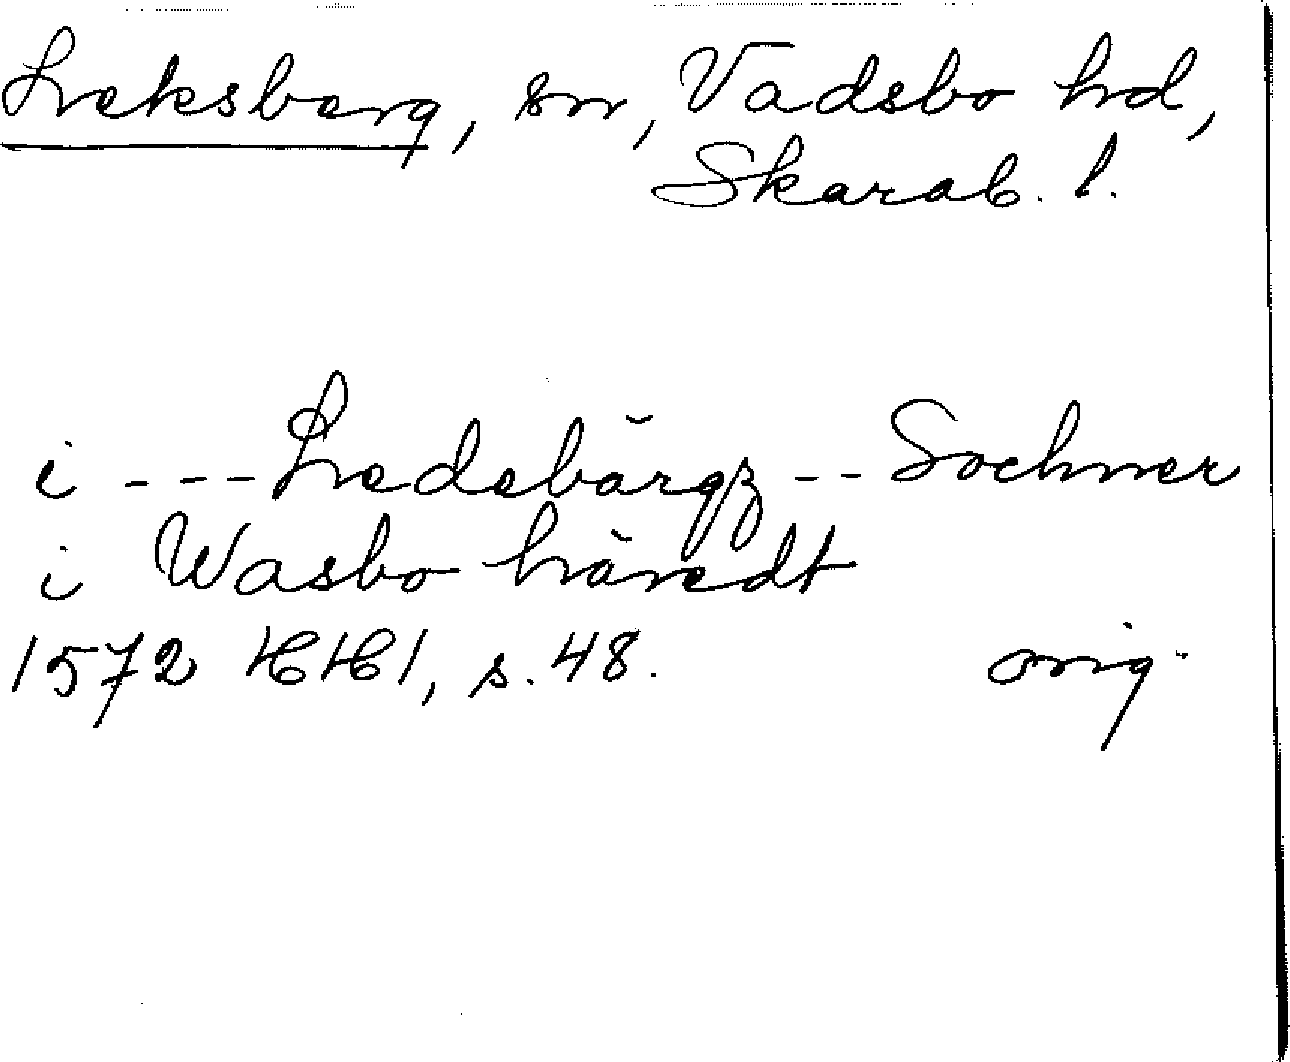 Leksberg, sn, Vadsbo hd,
Skarab. l.
i --- Ledebărgß -- Sochner
i Wasbo hăredt
1572 HH1, s. 48. orig.